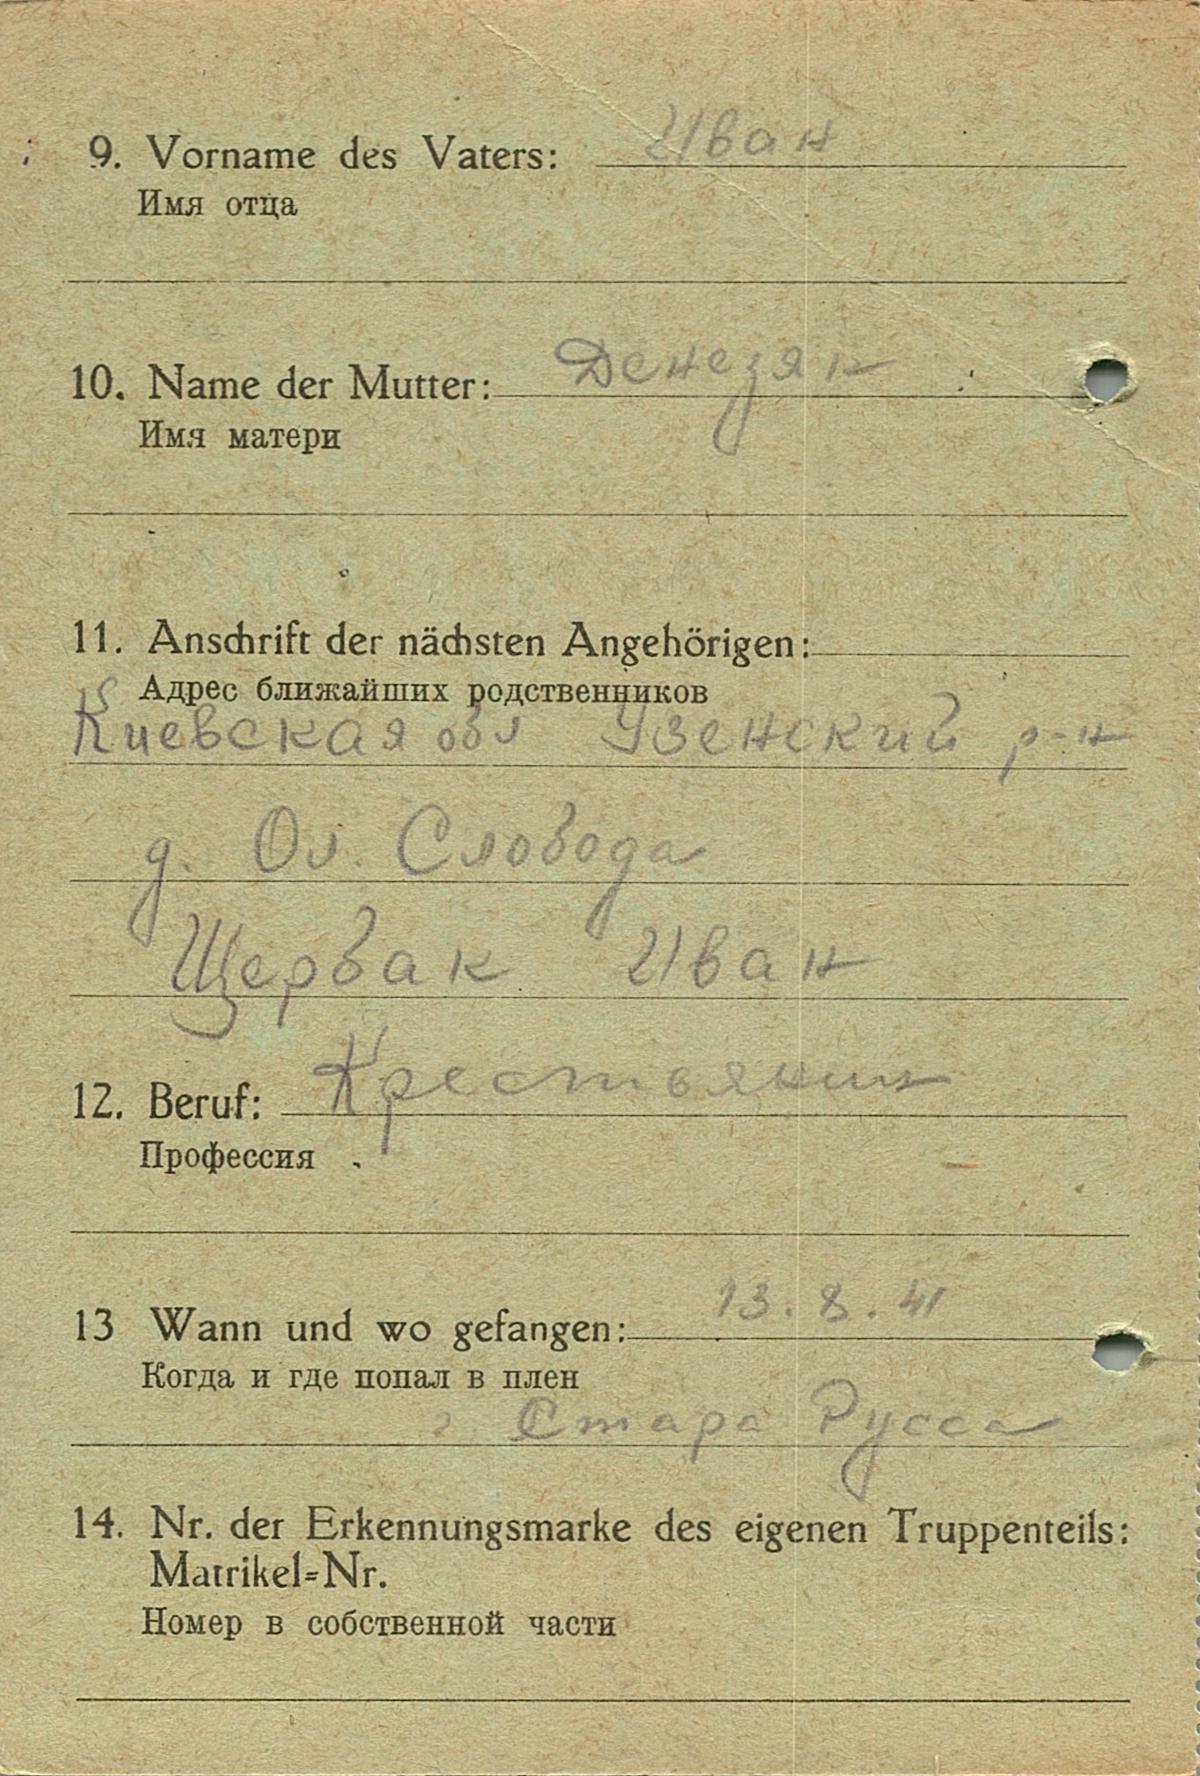 9. Vorname des Vaters: Иван
Имя отца
10. Name der Mutter: Денезян
Имя матери
11. Anschrift der nächsten Angehörigen:
Адрес ближайших родственников
Киевская обл Узенский р-н
д. Ол. Слобода
Щербак Иван
12. Beruf: Крестьянин
Профессия
13 Wann und wo gefangen: 13.8.41
Когда и где попал в плен
г Стара Русса
14. Nr. der Erkennungsmarke des eigenen Truppenteils:
Matrikel=Nr.
Номер в собственной части